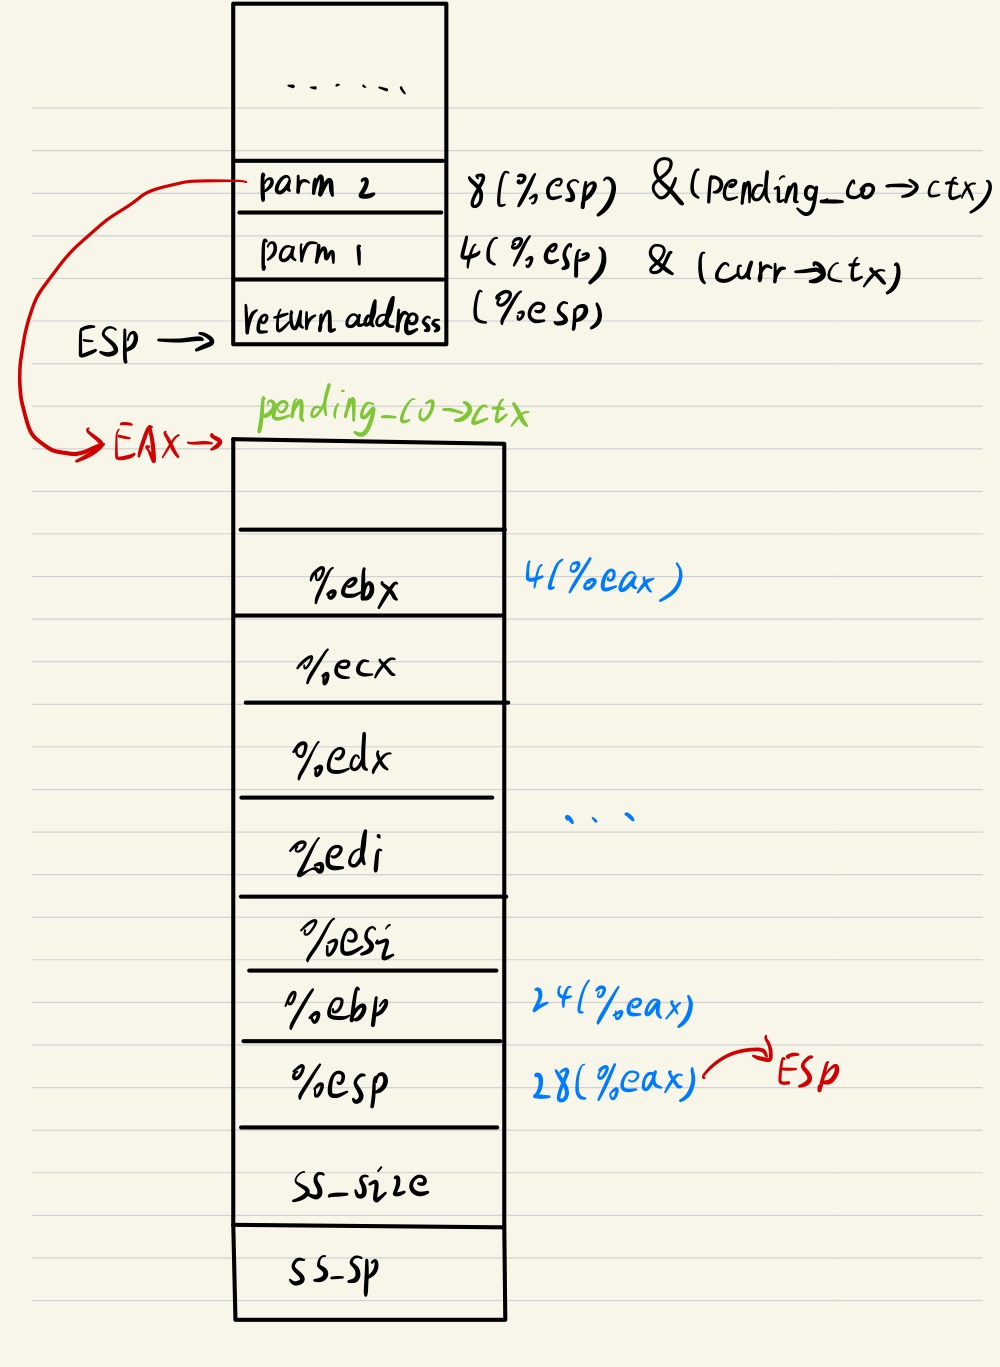 ......
parm 2 8(%esp) &(pending_co→ctx)
parm 1 4(%esp) &(curr→ctx)
return address (%esp)
ESp →
pending_co→ctx
EAx→
%ebx 4(%eax)
%ecx
%edx
...
%edi
%esi
%ebp 24(%eax)
%esp 28(%eax) ESp
ss_size
ss_sp